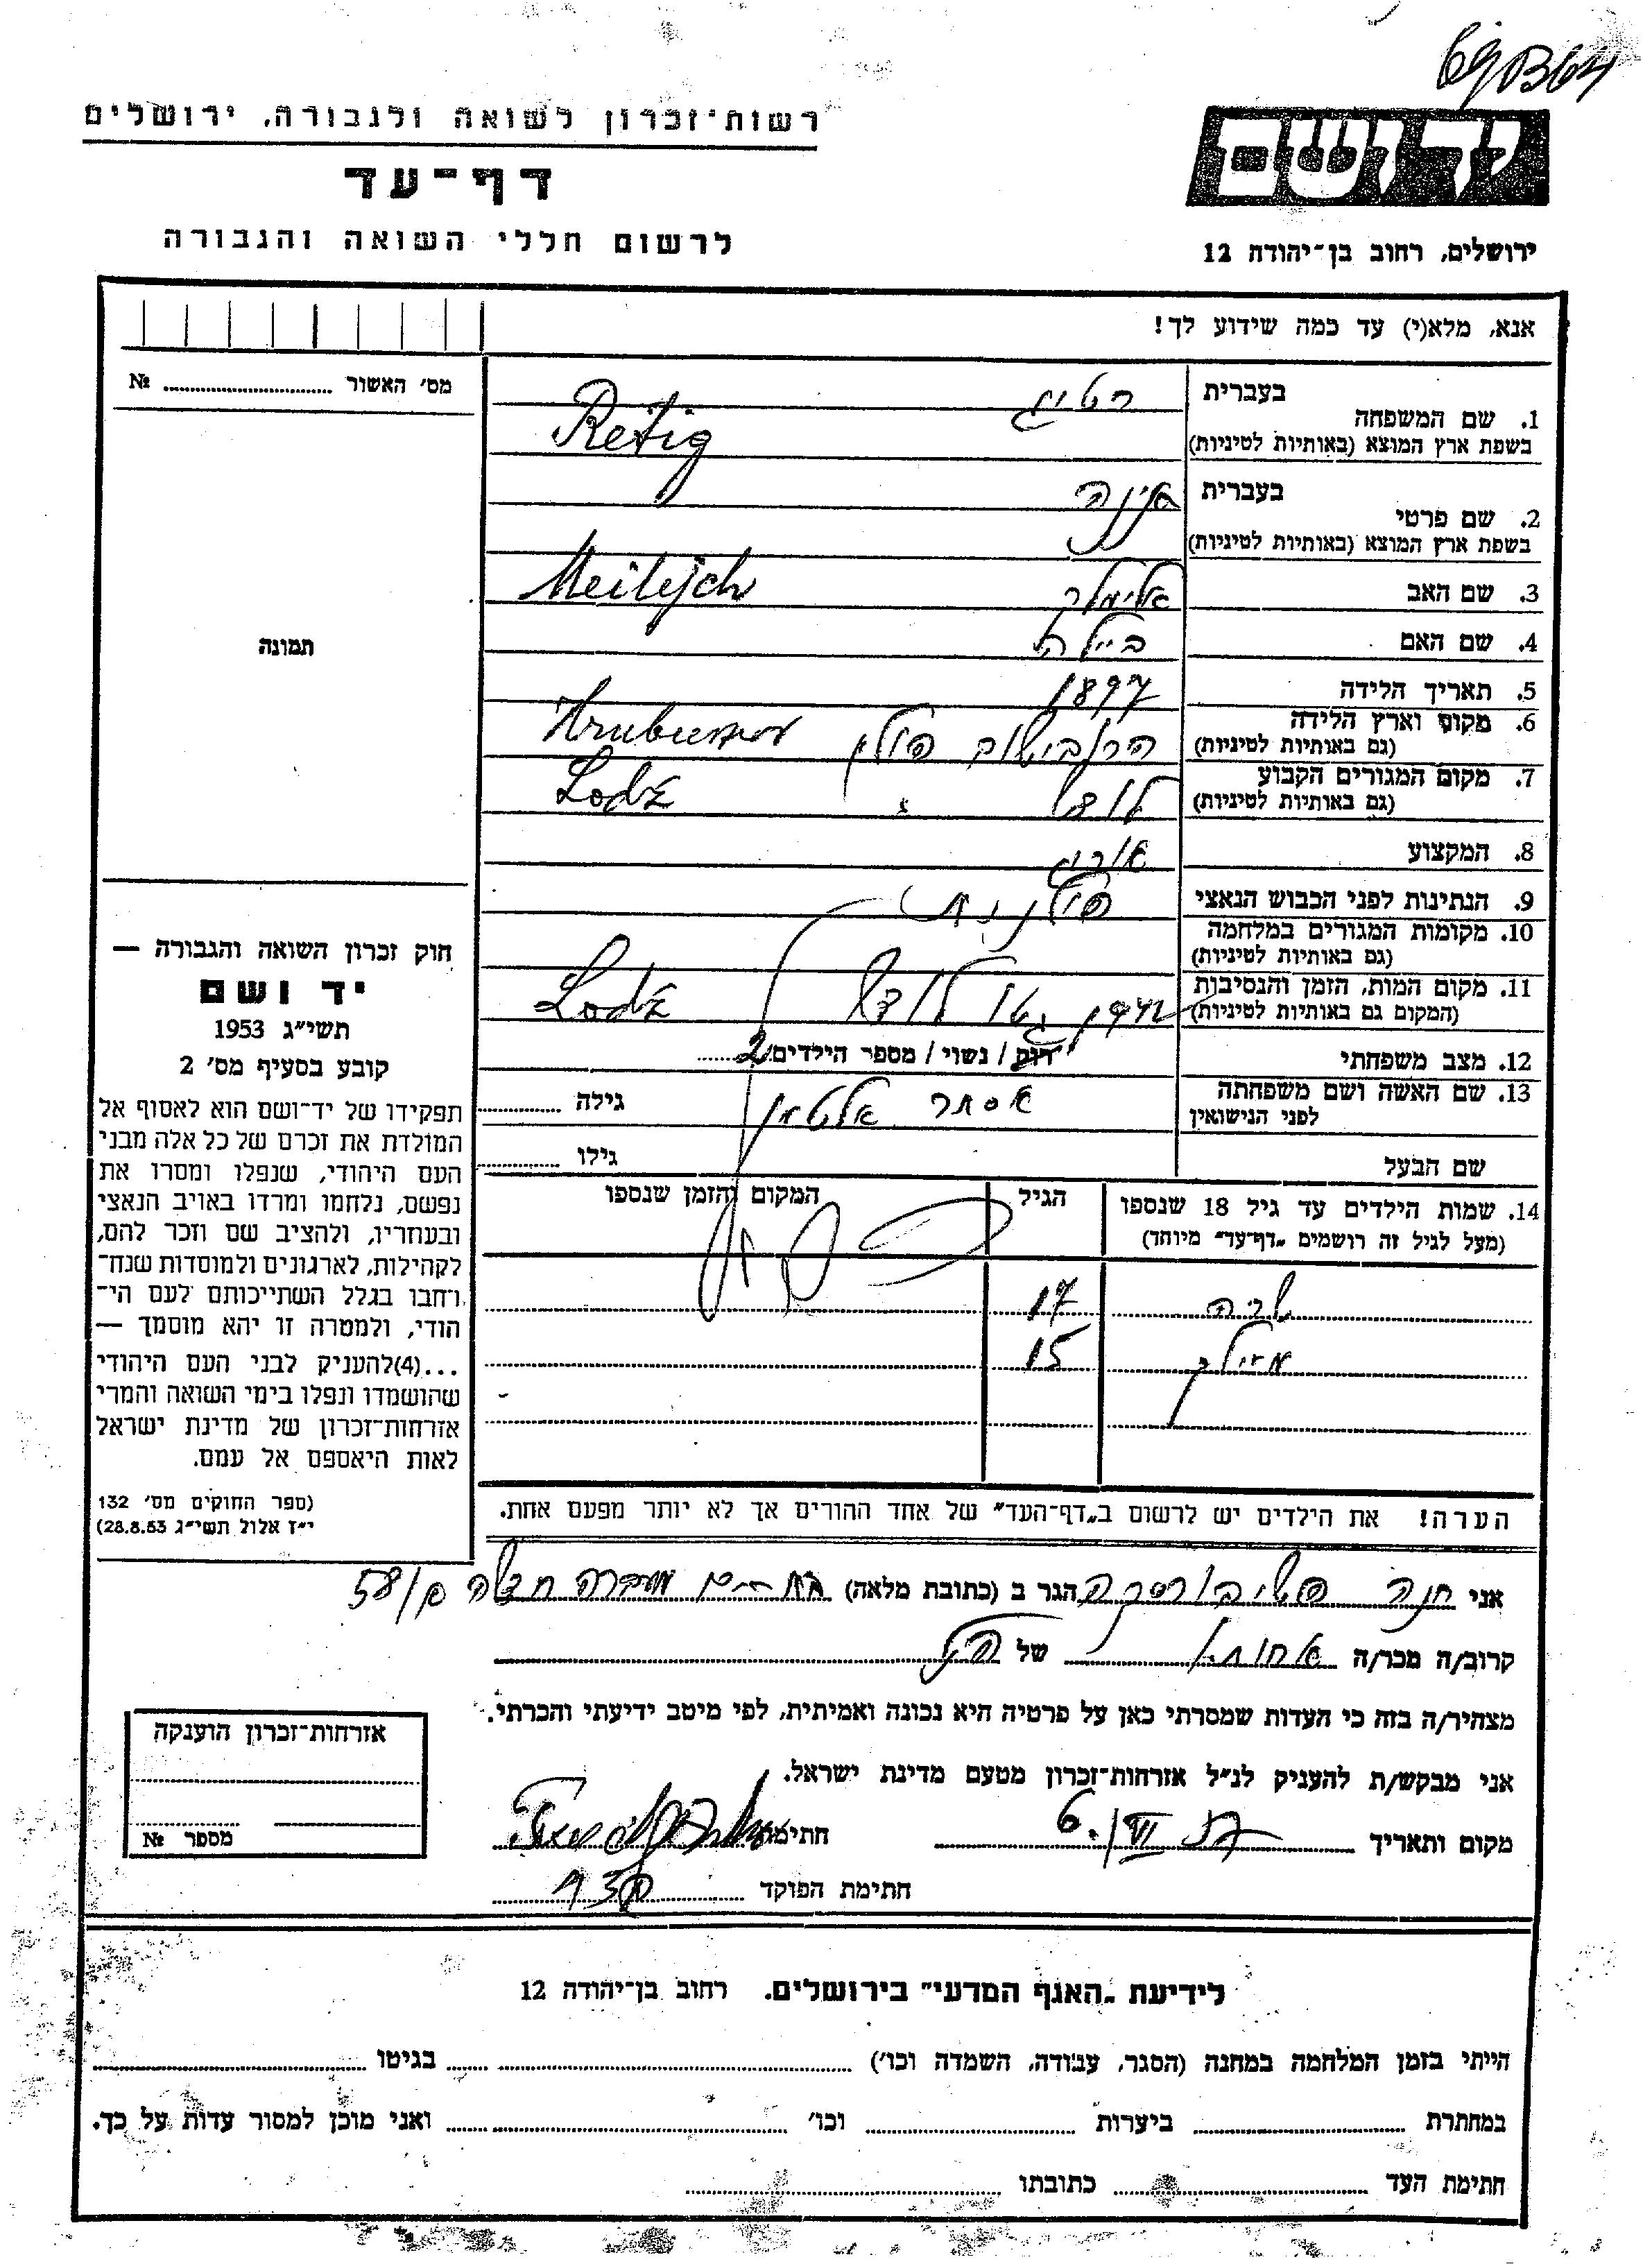 רשות־זכרון לשואה ולגבורה, ירושלים
דף־עד
לרשום חללי השואה והגבורה
יד ושם
ירושלים, רחוב בן־יהודה 12
אנא, מלא(י) עד כמה שידוע לך!
מס׳ האשור № 
1. שם המשפחה
בעברית רטיג
בשפת ארץ המוצא (באותיות לטיניות) Retig
2. שם פרטי
בעברית
בשפת ארץ המוצא (באותיות לטיניות)
3. שם האב אלימלך Meilejch
4. שם האם ביילה
5. תאריך הלידה 1897
6. מקום וארץ הלידה
(גם באותיות לטיניות) הרובישוב פולין
7. מקום המגורים הקבוע
(גם באותיות לטיניות) לודז׳ Lodź
8. המקצוע אורג
9. הנתינות לפני הכבוש הנאצי פולנית
10. מקומות המגורים במלחמה
(גם באותיות לטיניות)
11. מקום המות, הזמן והנסיבות
(המקום גם באותיות לטיניות) גטו לודז׳ Lodź
12. מצב משפחתי רוק / נשוי / מספר הילדים 2
13. שם האשה ושם משפחתה
לפני הנישואין אסתר אלטמן גילה
שם הבעל גילו
14. שמות הילדים עד גיל 18 שנספו
(מעל לגיל זה רושמים „דף־עד״ מיוחד)
הגיל
המקום והזמן שנספו
17
15
הערה! את הילדים יש לרשום ב„דף־העד״ של אחד ההורים אך לא יותר מפעם אחת.
תמונה
חוק זכרון השואה והגבורה —
יד ושם
תשי״ג 1953
קובע בסעיף מס׳ 2
תפקידו של יד־ושם הוא לאסוף אל
המולדת את זכרם של כל אלה מבני
העם היהודי, שנפלו ומסרו את
נפשם, נלחמו ומרדו באויב הנאצי
ובעוזריו, ולהציב שם וזכר להם,
לקהילות, לארגונים ולמוסדות שנח־
רחבו בגלל השתייכותם לעם הי־
הודי, ולמטרה זו יהא מוסמך —
...(4) להעניק לבני העם היהודי
שהושמדו ונפלו בימי השואה והמרי
אזרחות־זכרון של מדינת ישראל
לאות היאספם אל עמם.
(ספר החוקים מס׳ 132
י״ז אלול תשי״ג 28.8.53)
אני חנה הגר ב (כתובת מלאה) 58/
קרוב/ה מכר/ה של
מצהיר/ה בזה כי העדות שמסרתי כאן על פרטיה היא נכונה ואמיתית, לפי מיטב ידיעתי והכרתי.
אני מבקש/ת להעניק לנ״ל אזרחות־זכרון מטעם מדינת ישראל.
מקום ותאריך חתימה
חתימת הפוקד
אזרחות־זכרון הוענקה
מספר №
לידיעת „האגף המדעי״ בירושלים. רחוב בן־יהודה 12
הייתי בזמן המלחמה במחנה (הסגר, עבודה, השמדה וכו׳) בגיטו
במחתרת ביערות וכו׳ ואני מוכן למסור עדות על כך.
חתימת העד כתובתו